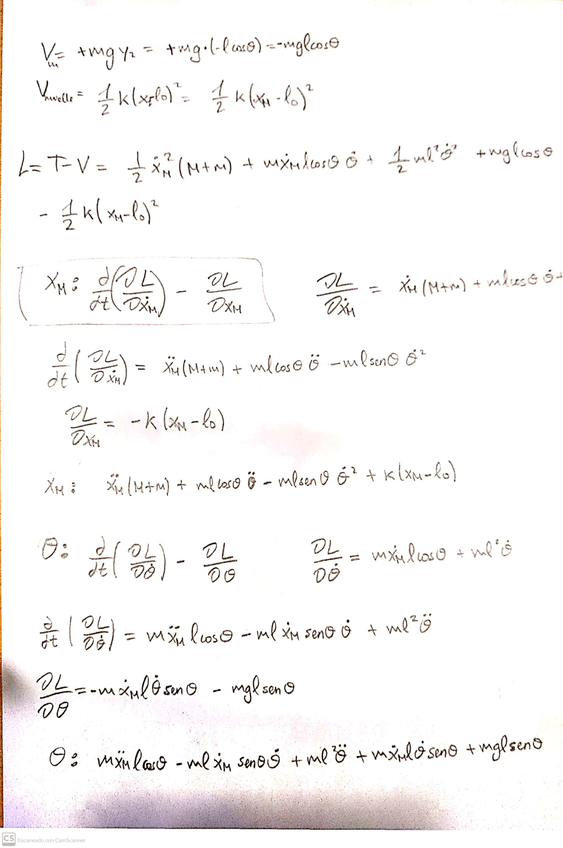 V_m = +mg y₂ = +mg·(-l cosθ) = -mgl cosθ
V_muelle = 1/2 k(x_f-l₀)² = 1/2 k(x_M - l₀)²
L = T-V = 1/2 ẋ_M² (M+m) + mẋ_M l cosθ θ̇ + 1/2 ml²θ̇² + mgl cosθ
- 1/2 k(x_M-l₀)²
x_M: d/dt(∂L/∂ẋ_M) - ∂L/∂x_M ∂L/∂ẋ_M = ẋ_M (M+m) + ml cosθ θ̇
d/dt(∂L/∂ẋ_M) = ẍ_M (M+m) + ml cosθ θ̈ - ml senθ θ̇²
∂L/∂x_M = -k(x_M-l₀)
x_M: ẍ_M (M+m) + ml cosθ θ̈ - ml senθ θ̇² + k(x_M-l₀)
θ: d/dt(∂L/∂θ̇) - ∂L/∂θ ∂L/∂θ̇ = mẋ_M l cosθ + ml²θ̇
d/dt(∂L/∂θ̇) = mẍ_M l cosθ - ml ẋ_M senθ θ̇ + ml²θ̈
∂L/∂θ = -mẋ_M l θ̇ senθ - mgl senθ
θ: mẍ_M l cosθ - ml ẋ_M senθ θ̇ + ml²θ̈ + mẋ_M l θ̇ senθ + mgl senθ
CS Escaneado con CamScanner